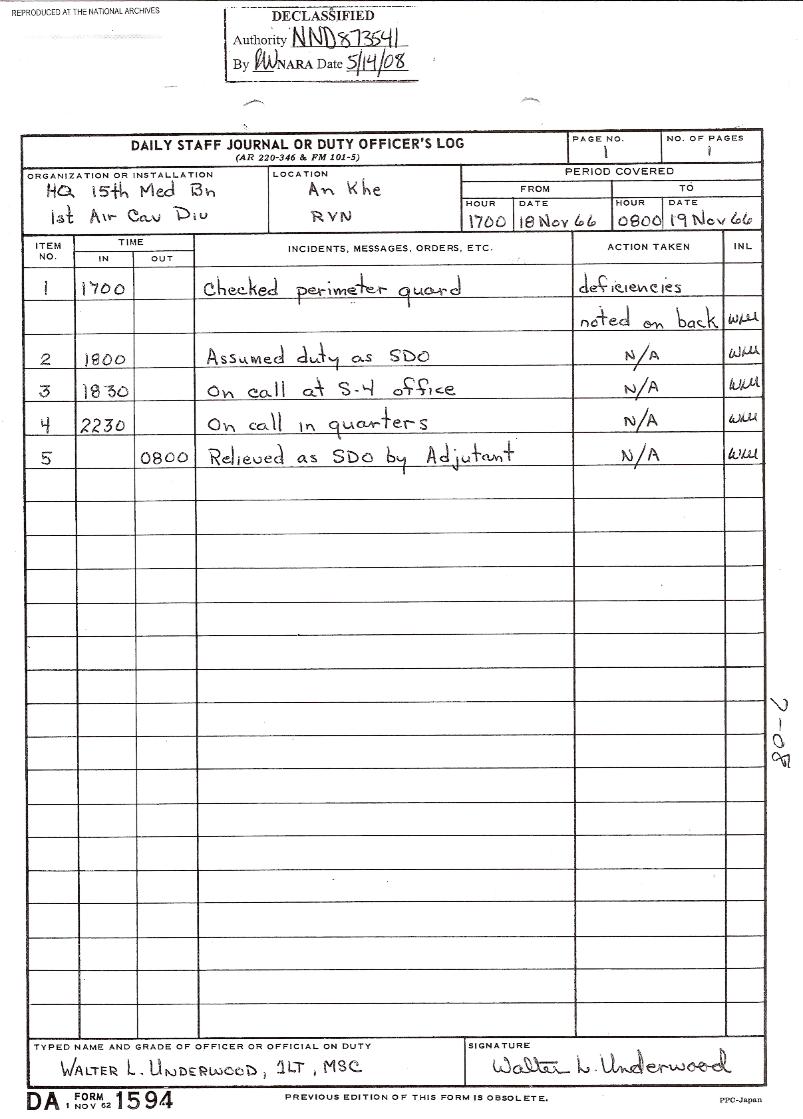 REPRODUCED AT THE NATIONAL ARCHIVES
DECLASSIFIED
Authority NND873541
By RW NARA Date 5/14/08
DAILY STAFF JOURNAL OR DUTY OFFICER'S LOG
(AR 220-346 & FM 101-5)
PAGE NO.
1
NO. OF PAGES
1
ORGANIZATION OR INSTALLATION
HQ 15th Med Bn
1st Air Cav Div
LOCATION
An Khe
RVN
PERIOD COVERED
FROM TO
HOUR DATE HOUR DATE
1700 18 Nov 66 0800 19 Nov 66
ITEM NO. TIME INCIDENTS, MESSAGES, ORDERS, ETC. ACTION TAKEN INL
IN OUT
1 1700 Checked perimeter guard deficiencies
noted on back WLU
2 1800 Assumed duty as SDO N/A WLU
3 1830 On call at S-4 office N/A WLU
4 2230 On call in quarters N/A WLU
5 0800 Relieved as SDO by Adjutant N/A WLU
7-08
TYPED NAME AND GRADE OF OFFICER OR OFFICIAL ON DUTY
WALTER L. UNDERWOOD, 1LT, MSC
SIGNATURE
Walter L. Underwood
DA FORM 1 NOV 62 1594
PREVIOUS EDITION OF THIS FORM IS OBSOLETE.
PPC-Japan